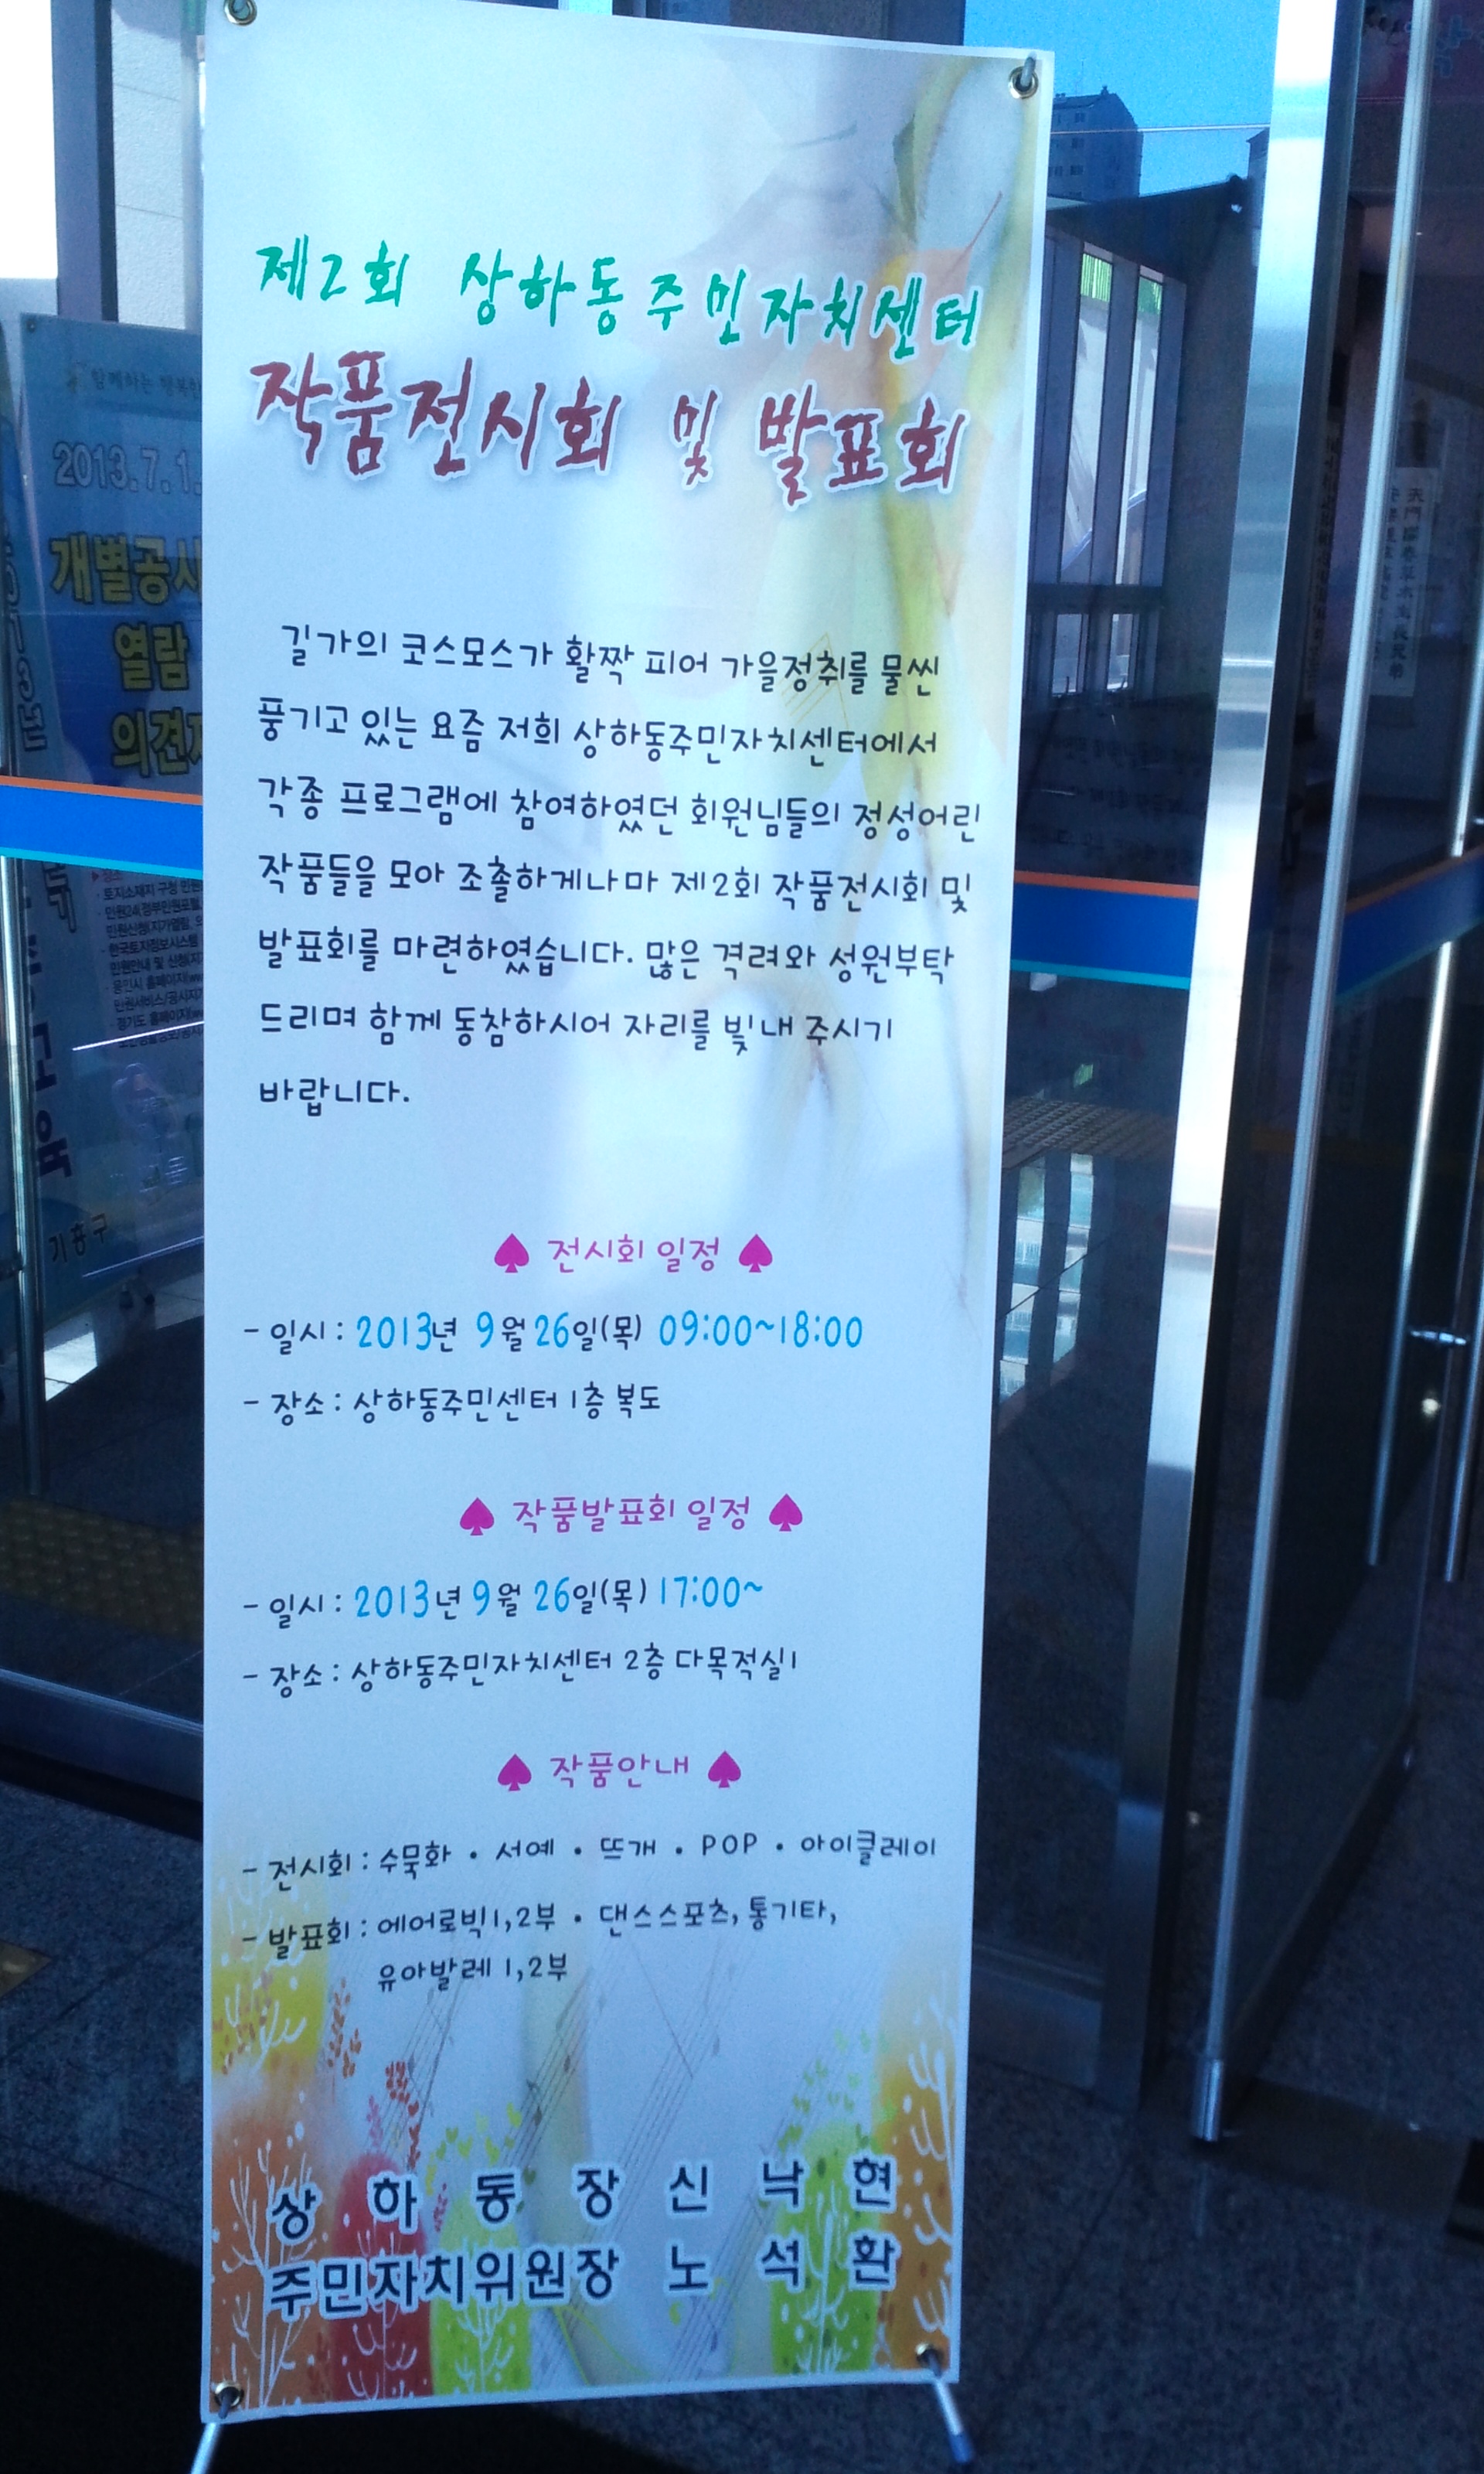 제2회 상하동주민자치센터
작품전시회 및 발표회
길가의 코스모스가 활짝 피어 가을정취를 물씬
풍기고 있는 요즘 저희 상하동주민자치센터에서
각종 프로그램에 참여하였던 회원님들의 정성어린
작품들을 모아 조촐하게나마 제2회 작품전시회 및
발표회를 마련하였습니다. 많은 격려와 성원부탁
드리며 함께 동참하시어 자리를 빛내 주시기
바랍니다.
♠ 전시회 일정 ♠
- 일시 : 2013년 9월 26일(목) 09:00~18:00
- 장소 : 상하동주민센터 1층 복도
♠ 작품발표회 일정 ♠
- 일시 : 2013년 9월 26일(목) 17:00~
- 장소 : 상하동주민자치센터 2층 다목적실1
♠ 작품안내 ♠
- 전시회 : 수묵화 • 서예 • 뜨개 • POP • 아이클레이
- 발표회 : 에어로빅1,2부 • 댄스스포츠, 통기타,
유아발레 1,2부
상하동장 신낙현
주민자치위원장 노석환
함께하는
2013.7.1.
개별공시
열람
의견
토지소재지 구청
기흥구